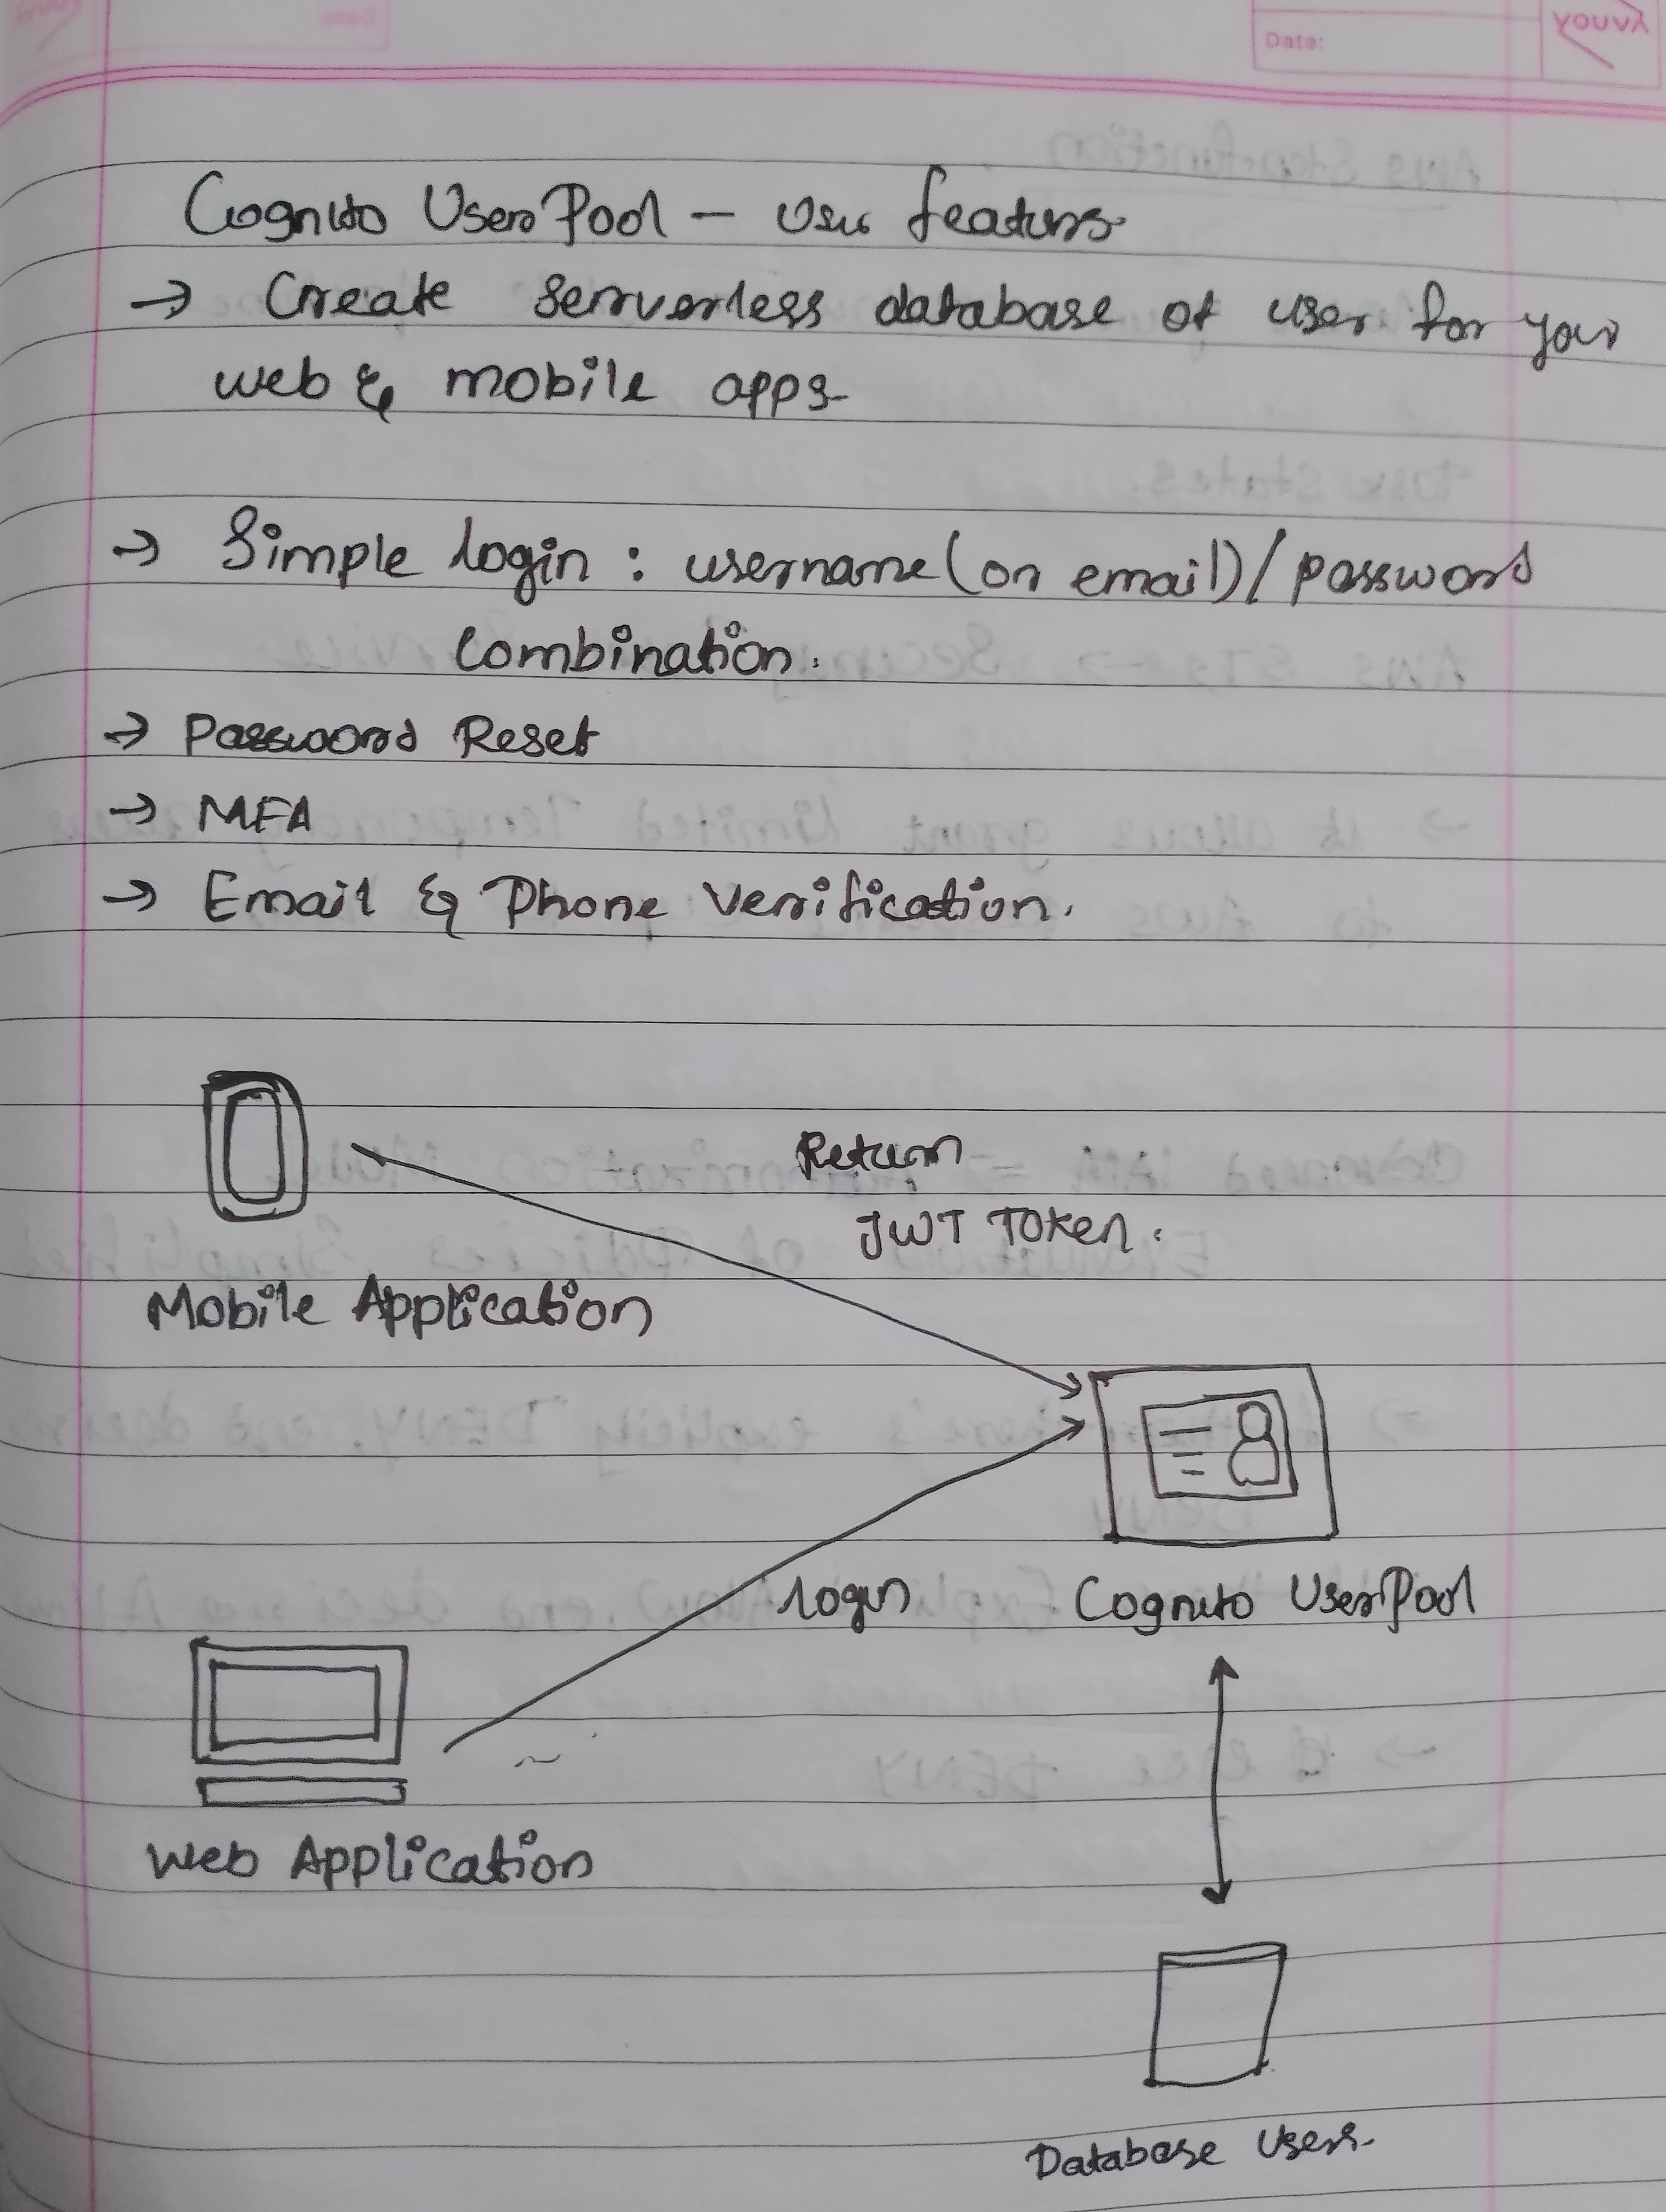 Date:
Cognito User Pool – User features
→ Create serverless database of user for your
web & mobile apps.
→ Simple login : username (or email) / password
Combination.
→ Password Reset
→ MFA
→ Email & Phone Verification.
Return
JWT Token.
Mobile Application
login
Cognito User Pool
Web Application
Database Users.